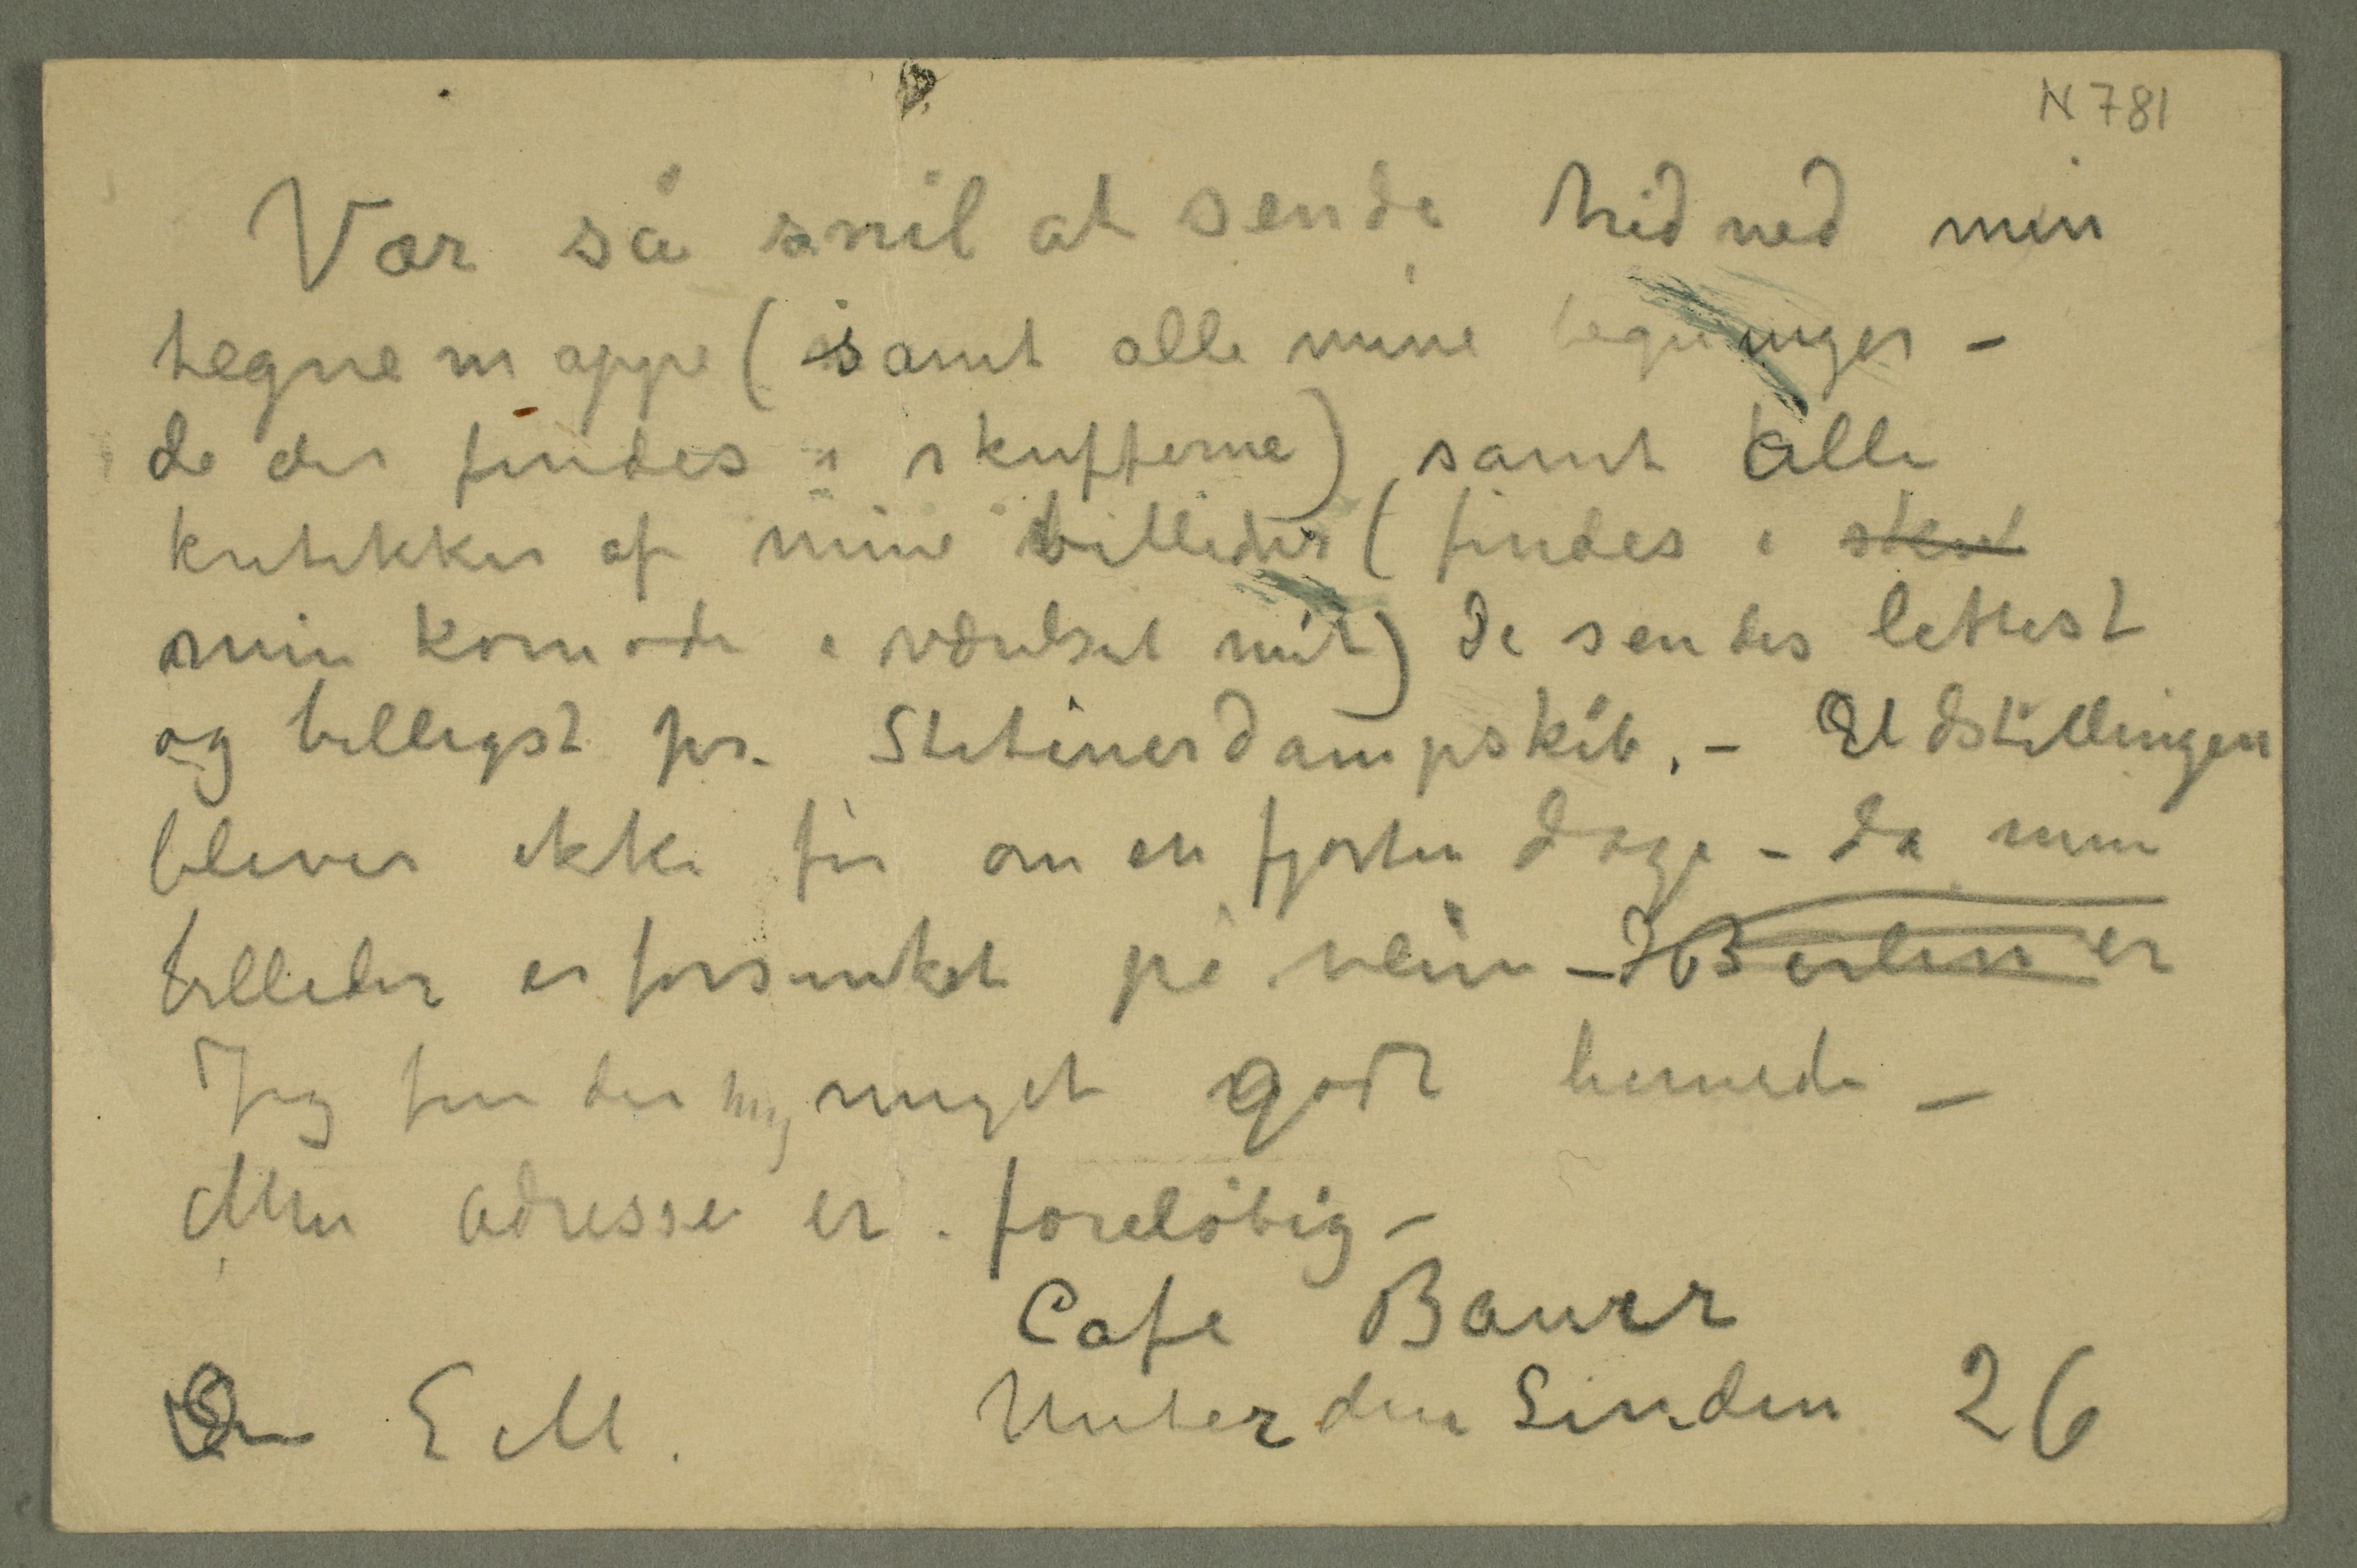 N 781
Vær så snil at sende hid ned min
tegnemappe (samt alle mine tegninger –
de der findes i skufferne) samt alle
kritikker af mine billeder (findes i
min komode i værelset mit) De sendes lettest
og billigst pr. Stetinerdampskib. – Udstillingen
bliver ikke før om en fjorten dage – da mine
billeder er forsinket på veien – Berlin er
Jeg finder mig meget godt hernede –
Min adresse er foreløbig –
Cafe Bauer
Din E M. Unter den Linden 26